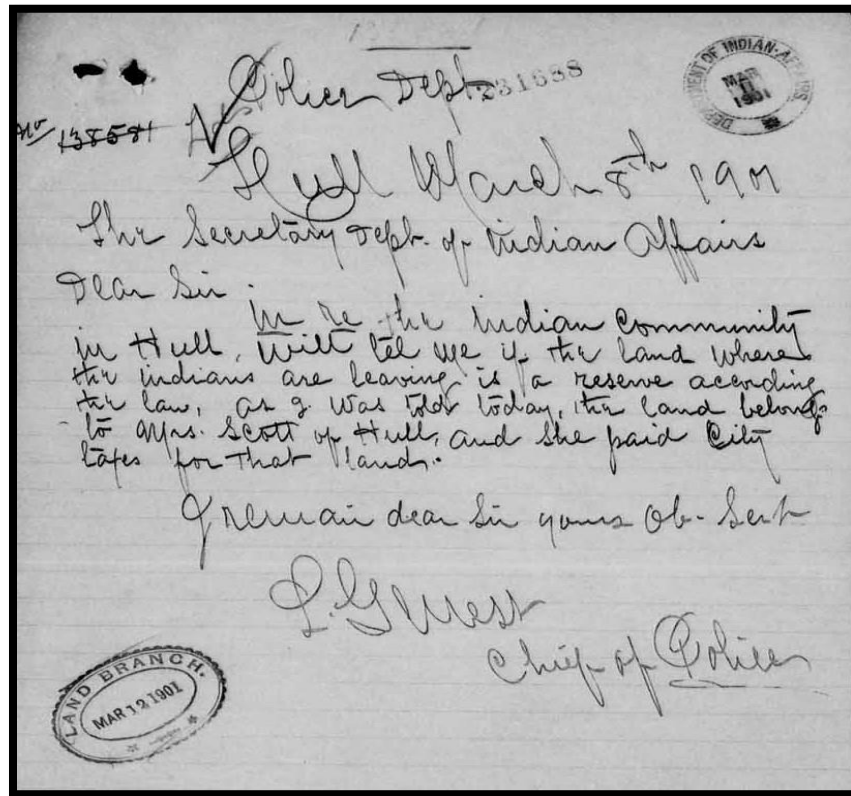 Police Dept.
231688
DEPARTMENT OF INDIAN AFFAIRS.
MAR
11
1901
No 138581
Hull March 8th 1901
The Secretary Dept. of Indian Affairs
Dear Sir.
In re the Indian Community
in Hull, Will tell me if the land where
the indians are leaving is a reserve according
the law, as I was told today, the land belongs
to Mrs. Scott of Hull, and she paid City
taxes for that land.
I remain dear Sir yours Ob. Sert
L. Genest
Chief of Police
LAND BRANCH.
MAR 12 1901